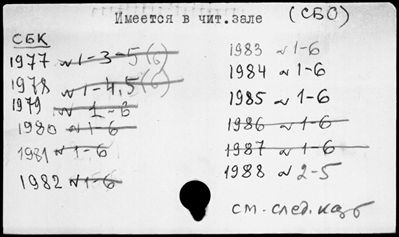 Имеется в чит.зале (СБО)
СБК
1977 № 1-3-5(6)
1978 № 1-4,5(6)
1979 № 1-6
1980 № 1-6
1981 № 1-6
1982 № 1-6
1983 № 1-6
1984 № 1-6
1985 № 1-6
1986 № 1-6
1987 № 1-6
1988 № 2-5
см. след.